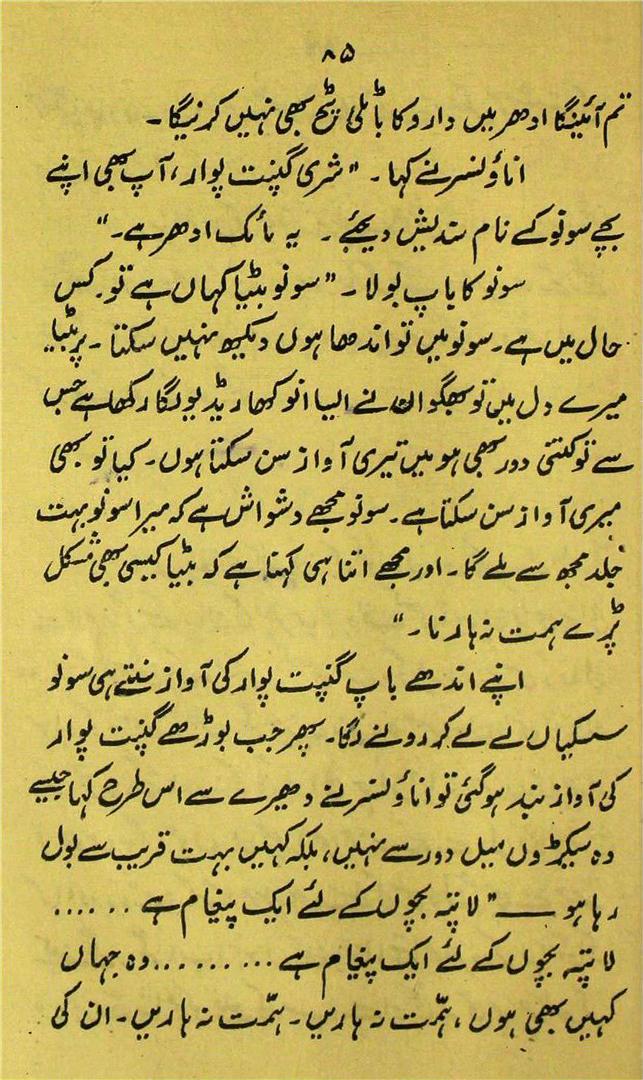 ۸۵
تم آئینگا ادھر میں دارو کا باٹلی ٹچ بھی نہیں کرنیگا۔
اناؤنسر نے کہا۔ "شری گنپت پوار، آپ بھی اپنے
بچے سونو کے نام سندیش دیجئے ۔ یہ مائک ادھر ہے۔"
سونو کا باپ بولا۔ "سونو بٹیا کہاں ہے تو۔ کس
حال میں ہے۔ سونو میں تو اندھا ہوں دیکھ نہیں سکتا۔ پر بٹیا
میرے دل میں تو بھگوان نے ایسا انوکھا ریڈیو لگا رکھا ہے جس
سے تو کتنی دور بھی ہو میں تیری آواز سن سکتا ہوں۔ کیا تو بھی
میری آواز سن سکتا ہے۔ سونو مجھے وشواش ہے کہ میرا سونو بہت
جلد مجھ سے ملے گا۔ اور مجھے اتنا ہی کہنا ہے کہ بٹیا کیسی بھی مشکل
پڑے ہمت نہ ہارنا۔"
اپنے اندھے باپ گنپت پوار کی آواز سنتے ہی سونو
سسکیاں لے لے کر رونے لگا۔ پھر جب بوڑھے گنپت پوار
کی آواز بند ہو گئی تو اناؤنسر نے دھیرے سے اس طرح کہا جیسے
وہ سیکڑوں میل دور سے نہیں، بلکہ کہیں بہت قریب سے بول
رہا ہو ــــ "لاپتہ بچوں کے لئے ایک پیغام ہے ......
لاپتہ بچوں کے لئے ایک پیغام ہے ......... وہ جہاں
کہیں بھی ہوں، ہمّت نہ ہاریں۔ ہمّت نہ ہاریں۔ ان کی